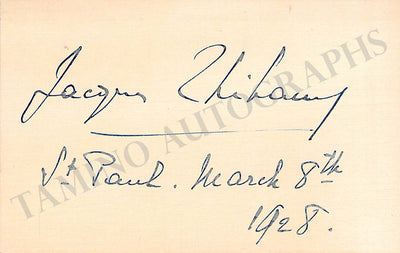 Jacques Thibaud
St Paul. March 8th
1928.
TAMINO AUTOGRAPHS